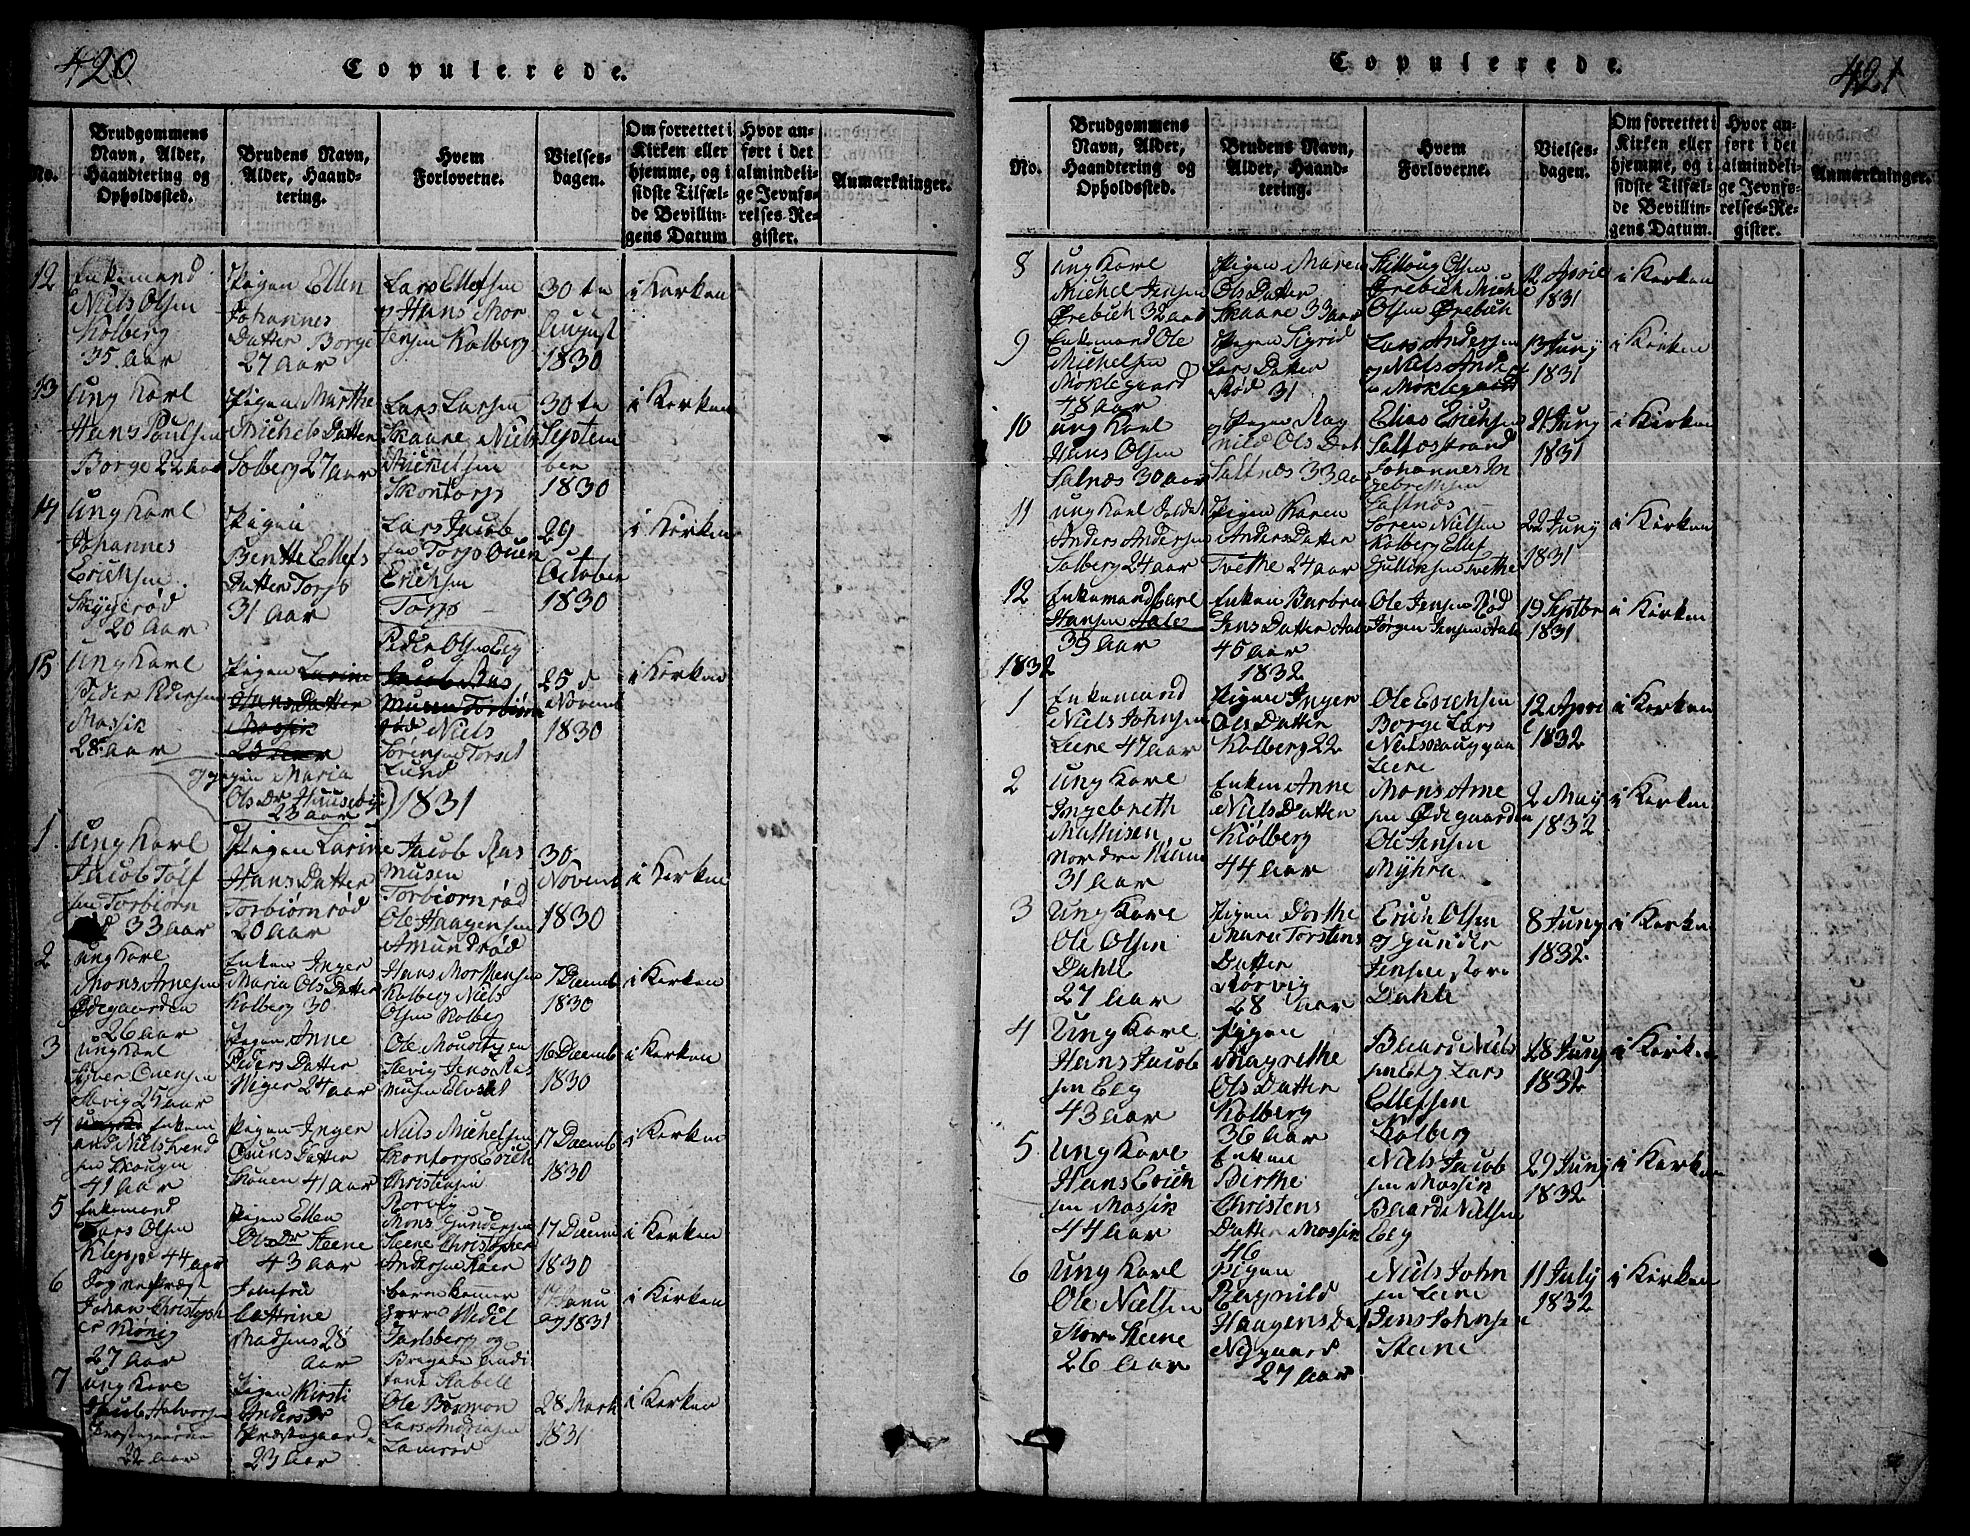 420
Copulerede.
No.
Brudgommens
Navn, Alder,
Haandtering og
Opholdssted.
Brudens Navn,
Alder, Haand-
tering.
Hvem
Forloverne.
Vielses-
dagen.
Om forrettet i
Kirken eller
hjemme, og i
sidste Tilfæl-
de Bevillin-
gens Datum
Hvor an-
ført i det
almindeli-
ge Jevnfø-
relses-Re-
gister.
Anmærkninger.
12
Enkemand
Niels Olsen
Kolberg
35 aar
Pigen Ellen
Johannes
Datter Borge
27 aar
Lars Ellefsen
og Hans Mor
tensen Kolberg
30 te
August
1830
i Kerken
13
Ung Karl
Hans Poulsen
Borge 22 aar
Pigen Marthe
Michels Datter
Solberg 27 aar
Lars Larsen
Skaare Niels
Michelsen
Skontorp
30 te
Septem
ber
1830
i Kerken
14
Ung Karl
Johannes
Ericksen
Skyggerød
20 Aar
Pigen
Benthe Ellefs
Datter Torp
31 Aar
Lars Jacob
sen Torp Ouen
Ericksen
Torp
29
October
1830
i Kirken
15
Ung Karl
Peder Pedersen
Mossik
28 aar
Pigen Larine
Hans Datter
Mossik
20 aar
og pigen Maria
Ols Dr Huuseby
23 aar
Peder Olsen Eeg
Jacob Ras
musen Torbiørn
rød Niels
Sørensen Torsel
Lund
25 d
Novemb
1830
i Kerken
1831
1.
Ung Karl
Jacob Tolf
sen Torbiørn
rød 33 aar
Pigen Larine
Hans Datter
Torbiørnrød
20 aar
Jacob Ras
musen
Torbiørnrød
Ole Haagensen
Amundrød
30
Novemb
1830
i Kerken
2
ung Karl
Mons Arnesen
Ødegaarden
26 aar
Enken Inger
Maria Ols Datter
Kolberg 30
Hans Morthensen
Kolberg Niels
Olsen Kolberg
7 Decemb
1830
i Kerken
3
Ung Karl
Syver Ouensen
Slevig 25 aar
Pigen Anne
Peders Datter
24 aar
Slevig Jens Ras
musen
16 Decemb
1830
i Kerken
4
Enkem
and Niels Svend
sen Skougen
41 aar
Pigen Inger
Ouens Datter
Skouen 41 aar
Niels Michelsen
Skontorp Erich
Christensen
Rørvig
17 Decemb
1830
i Kerken
5
Enkemand
Lars Olsen
Kleppe 44 aar
Pigen Ellen
Ols Dr Steene
43 aar
Mons Gundersen
Steene Christopher
Andersen
17 Decemb
1830
i Kerken
6
Sognepræst
Johan Christoph
er König
27 aar
Jomfru
Cattrine
Madsens 28
aar
herre Wedel
Jarlsberg og
Brigade Audi
7 Janu
ary 1831
i Kerken
7
ung Karl
Halvorsen
22 aar
Pigen Kirsti
Anders Dr
Præstegaard
23 aar
Ole Boemon
Lars Andersen
Lamrød
28 Mark
1831
i Kerken
421
Copulerede.
No.
Brudgommens
Navn, Alder,
Haandtering og
Opholdssted.
Brudens Navn,
Alder, Haand-
tering.
Hvem
Forloverne.
Vielses-
dagen.
Om forrettet i
Kirken eller
hjemme, og i
sidste Tilfæl-
de Bevillin-
gens Datum.
Hvor an-
ført i det
almindeli-
ge Jevnfø-
relses-Re-
gister.
Anmærkninger.
8
ung Karl
Michel Jensen
Ørebich 32 aar
Pigen Maren
Ols Datter
Skaare 33 aar
Olsen
Ørebich Miche
Olsen Ørebich
12 April
1831
i Kerken
9
Enkemand Ole
Michelsen
Møklegaard
48 aar
Pigen Sigrid
Lars Datter
Rød 31
Lars Andersen
og Niels Anders
en Møklegaard
13 Juny
1831
i Kirken
10
ung Karl
Hans Olsen
Salnæs 30 aar
Pigen Rag
nild Ols Dat
Saltnæs 33 aar
Elias Ericksen
Saltnesstrand
Johannes In
gebrethsen
Saltnæs
21 Juny
1831
i Kirken
11
ung Karl Soldat
Anders Andersen
Solberg 24 aar
Pigen Karen
Anders Datter
Tvethe 24 aar
Søren Nielsen
Kolberg Ellef
Gulliksen Tvethe
22 Juny
1831
i Kerken
12
Enkemand Carl
Hansen Aale
39 aar
Enken Barbra
Jens Datter Aale
45 aar
Ole Jensen Rød
Jørgen Jensen Aale
19 Septbr
1831
i Kerken
1832
1832
1
Enkemand
Niels Johnsen
Leene 47 aar
Pigen Inger
Ols Datter
Kolberg 22
Ole Ericksen
Borge Lars
Leene
12 Apri
l 1832
i Kerken
2
Ung Karl
Ingebreth
Mathisen
Nordre
31 aar
Enken Anne
Niels Datter
Kiølberg
44 aar
Mons Arne
sen Ødegaarden
Ole Jensen
Myhra
2 May
1832
i Kerken
3
Ung Karl
Ole Olsen
Dahle
27 aar
Pigen Dorthe
Marie Torstens
Datter
Rørvig
28 aar
Erich Olsen
og Gunder
Jensen Store
Dahle
8 Juny
1832
i Kerken
4
Ung Karl
Hans Jacob
sen Eeg
43 aar
Pigen
Magrethe
Ols Datter
Kolberg
36 aar
Baard Niels
sen Eeg Lars
Ellefsen
Kolberg
28 Juny
1832
i Kerken
5
Ung Karl
Hans Erich
sen Mossik
44 aar
Enken
Birthe
Christens
Datter Mossik
46
Niels Jacob
sen Mossik
Baard Nielsen
Eeg
29 Juny
1832
i Kerken
6
Ung Karl
Ole Nielsen
Store Steene
26 aar
Pigen
Ragnild
Haagens Dat
Nygaard
27 aar
Niels John
sen Leene
Jens Johnsen
Steene
11 July
1832
i Kirken